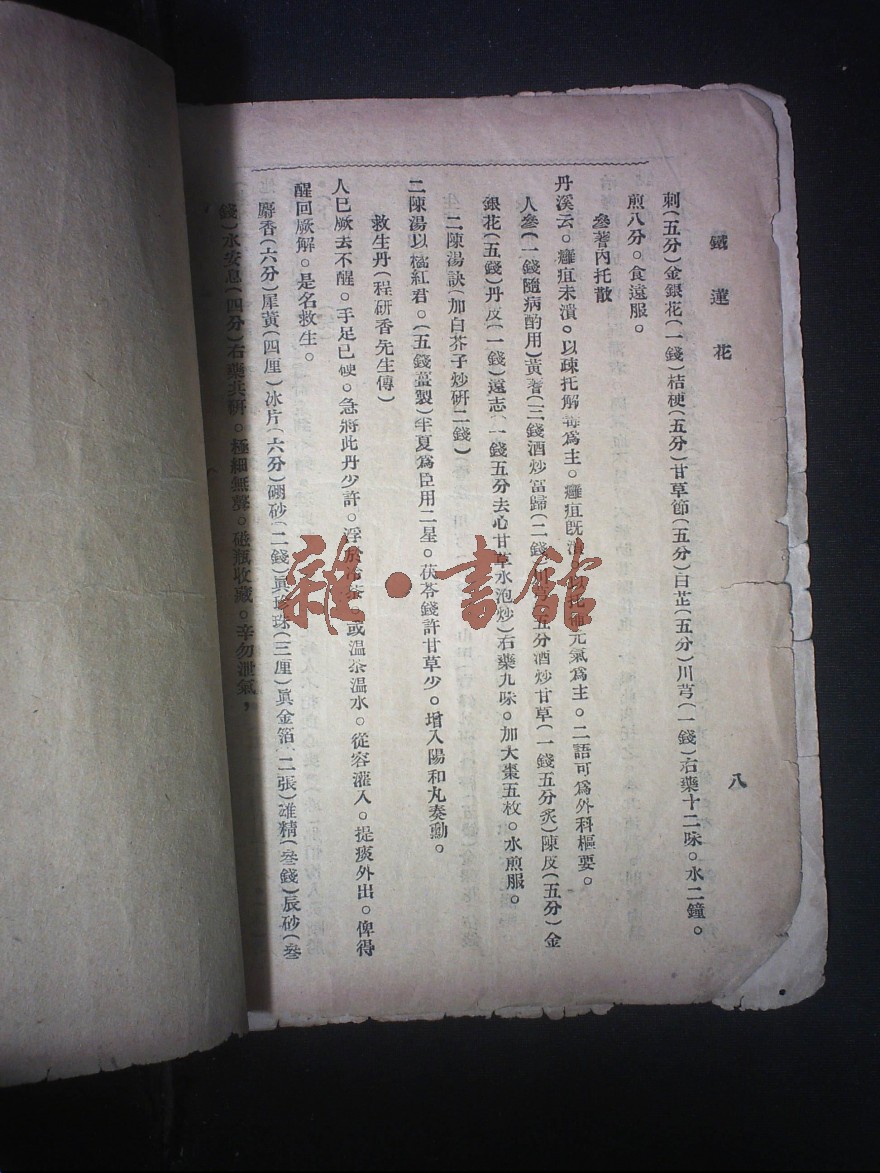 鐵蓮花
八
刺（五分）金銀花（一錢）桔梗（五分）甘草節（五分）白芷（五分）川芎（一錢）右藥十二味。水二鐘。
煎八分。食遠服。
參蓍內托散
丹溪云。癰疽未潰。以疎托解毒爲主。癰疽旣潰 以托 元氣爲主。二語可爲外科樞要。
人參（一錢隨病酌用）黃蓍（三錢酒炒當歸（二錢 川芎 五分酒炒甘草（一錢五分炙）陳皮（五分）金
銀花（五錢）丹皮（一錢）遠志（一錢五分去心甘草水泡炒）右藥九味。加大棗五枚。水煎服。
二陳湯訣（加白芥子炒研二錢）
二陳湯以橘紅君。（五錢薑製）半夏爲臣用二星。茯苓錢許甘草少。增入陽和丸奏勳。
救生丹（程研香先生傳）
人已厥去不醒。手足已硬。急將此丹少許。浮於 或温茶温水。從容灌入。提痰外出。俾得
醒回厥解。是名救生。
麝香（六分）犀黃（四厘）冰片（六分）硼砂（二錢）眞珍珠（三厘）眞金箔（二張）雄精（叄錢）辰砂（叄
錢）水安息（四分）右藥共研。極細無聲。磁瓶收藏。幸勿泄氣，
雜·書館